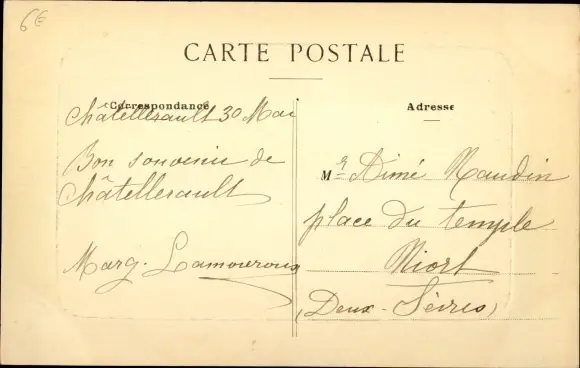 6€
CARTE POSTALE
Correspondance
Châtellerault 30 Mai
Bon souvenir de
Châtellerault
Marg. Lamouroux
Adresse
Mr Aimé Naudin
place du temple
Niort
(Deux-Sèvres)